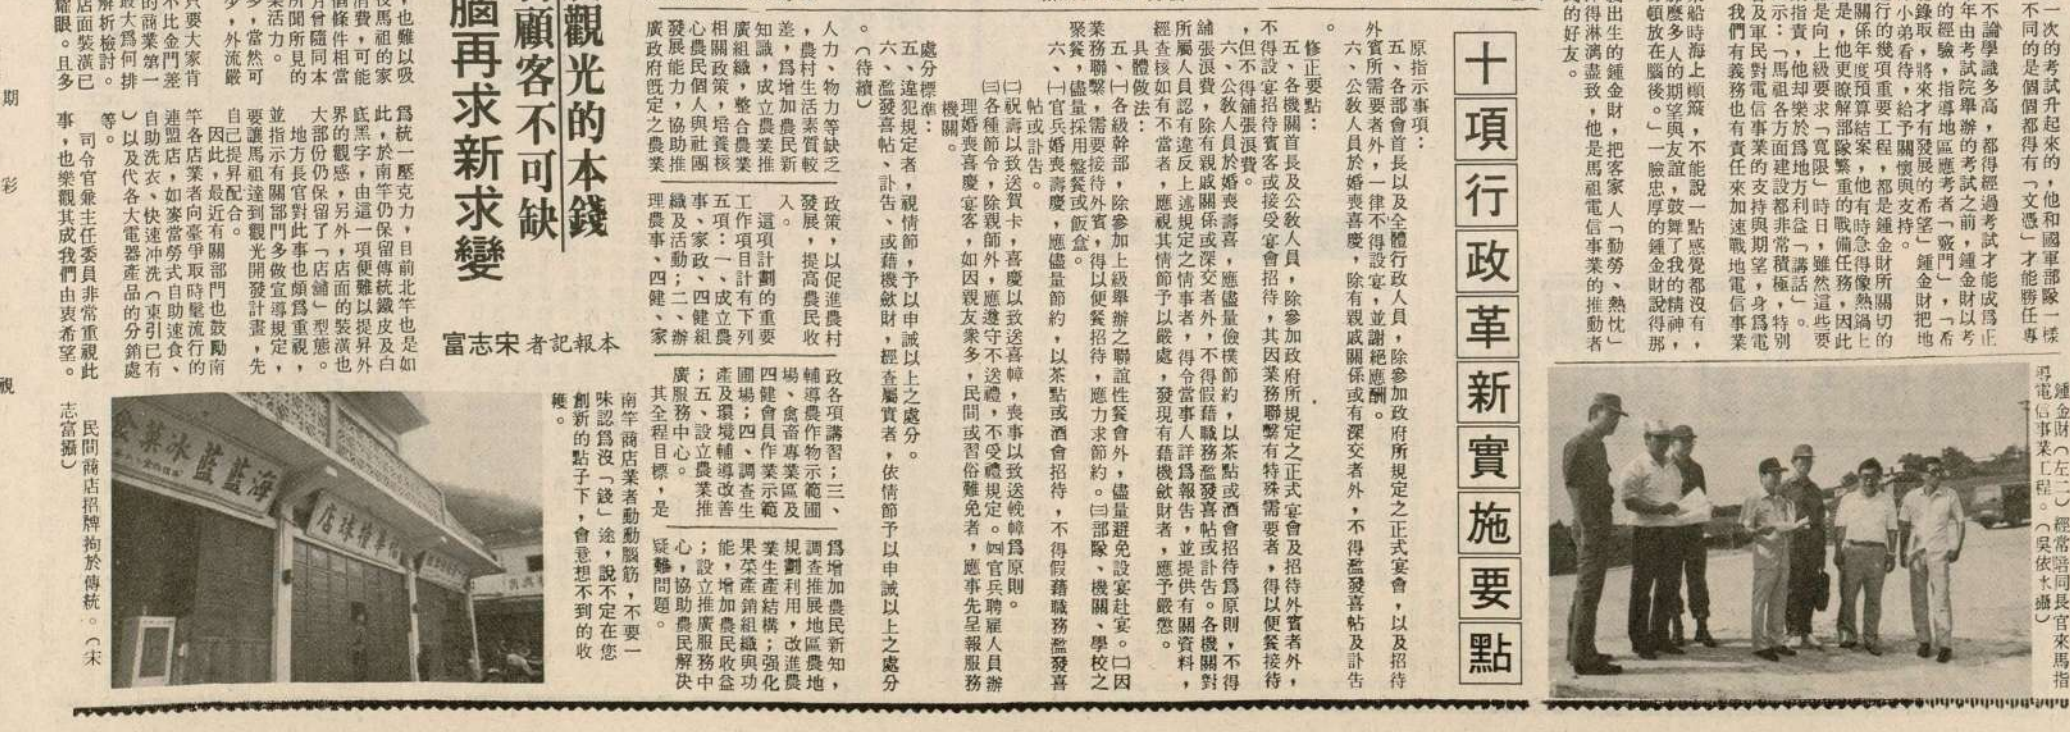 一次的考試升起來的，他和國軍部隊一樣
不同的是個個都得有「文憑」才能勝任專
不論學識多高，都得經過考試才能成爲正
年由考試院舉辦的考試之前，鍾金財以考
的經驗，指導地區應考者「竅門」，「希
錄取，將來才有發展的希望」鍾金財把地
小弟看待，給予關懷與支持。
行的幾項重要工程，都是鍾金財所關切的
關係年度預算結案，他有時急得像熱鍋上
是，他更瞭解部隊繁重的戰備任務，因此
是向上級要求「寬限」時日，雖然這些要
指責，他却樂於爲地方利益「講話」。
示：「馬祖各方面建設都非常積極，特別
及軍民對電信事業的支持與期望，身爲電
我們有義務也有責任來加速戰地電信事業
船時海上顛簸，不能說一點感覺都沒有，
麼多人的期望與友誼，鼓舞了我的精神，
頓放在腦後。」一臉忠厚的鍾金財說得那
出生的鍾金財，把客家人「勤勞、熱忱」
得淋漓盡致，他是馬祖電信事業的推動者
的好友。
鍾金財（左二）經常陪同長官來馬指
導電信事業工程。（吳依水攝）
十項行政革新實施要點
原指示事項：
五、各部會首長以及全體行政人員，除參加政府所規定之正式宴會，以及招待
外賓所需要者外，一律不得設宴，並謝絕應酬。
六、公教人員於婚喪喜慶，除有親戚關係或有深交者外，不得濫發喜帖及訃告
。
修正要點：
五、各機關首長及公教人員，除參加政府所規定之正式宴會及招待外賓者外，
不得設宴招待賓客或接受宴會招待，其因業務聯繫有特殊需要者，得以便餐接待
，但不得舖張浪費。
六、公教人員於婚喪壽喜，應儘量儉樸節約，以茶點或酒會招待爲原則，不得
舖張浪費，除有親戚關係或深交者外，不得假藉職務濫發喜帖或訃告。各機關對
所屬人員認有違反上述規定之情事者，得令當事人詳爲報告，並提供有關資料，
經查核如有不當者，應視其情節予以嚴處，發現有藉機歛財者，應予嚴懲。
具體做法：
五、㈠各級幹部，除參加上級舉辦之聯誼性餐會外，儘量避免設宴赴宴。㈡因
業務聯繫，需要接待外賓，得以便餐招待，應力求節約。㈢部隊、機關、學校之
聚餐，儘量採用盤餐或飯盒。
六、㈠官兵婚喪壽慶，應儘量節約，以茶點或酒會招待，不得假藉職務濫發喜
帖或訃告。
㈡祝壽以致送賀卡，喜慶以致送喜幛，喪事以致送輓幛爲原則。
㈢各種節令，除親師外，應遵守不送禮，不受禮規定。㈣官兵聘雇人員辦
理婚喪喜慶宴客，如因親友衆多，民間或習俗難免者，應事先呈報服務
機關。
處分標準：
五、違犯規定者，視情節，予以申誡以上之處分。
六、濫發喜帖、訃告、或藉機歛財，經查屬實者，依情節予以申誡以上之處分
。（待續）
人力、物力等缺乏
，農村生活素質較
差，爲增加農民新
知識，成立農業推
廣組織，整合農業
相關政策，培養核
心農民個人與社團
發展能力，協助推
廣政府旣定之農業
政策，以促進農村
發展，提高農民收
入。
這項計劃的重要
工作項目計有下列
五項：一、成立農
事、家政、四健組
織及活動；二、辦
理農事、四健、家
政各項講習；三、
輔導農作物示範圃
場、禽畜專業區及
四健會員作業示範
圃場；四、調查生
產及環境輔導改善
；五、設立農業推
廣服務中心。
其全程目標，是
爲增加農民新知，
調查推展地區農地
規劃利用，改進農
業生產結構；强化
果菜產銷組織與功
能，增加農民收益
；設立推廣服務中
心，協助農民解決
疑難問題。
觀光的本錢
顧客不可缺
腦再求新求變
本報記者宋志富
也難以吸
馬祖的家
消費，可能
條件相當
月曾隨同本
所聞所見的
業活力。
多，當然可
少，外流嚴
只要大家肯
不比金門差
的商業第一
最大爲何排
解析檢討。
店面裝潢已
耀眼。且多
爲統一壓克力，目前北竿也是如
此，於南竿仍保留傳統鐵皮及白
底黑字，由這一項便難以提昇外
界的觀感，另外，店面的裝潢也
大部份仍保留了「店舖」型態。
地方長官對此事也頗爲重視，
並指示有關部門多做宣導規定，
要讓馬祖達到觀光開發計畫，先
自己提昇配合。
因此，最近有關部門也鼓勵南
竿各店業者向臺爭取時髦流行的
連盟店，如麥當勞式自助速食、
自助洗衣、快速冲洗（東引已有
）以及代各大電器產品的分銷處
等。
司令官兼主任委員非常重視此
事，也樂觀其成我們由衷希望。
南竿商店業者動動腦筋，不要一
味認爲沒「錢」途，說不定在您
創新的點子下，會意想不到的收
穫。
海藍藍冰菓舍
民間商店招牌拘於傳統。（宋
志富攝）
期
彩
視